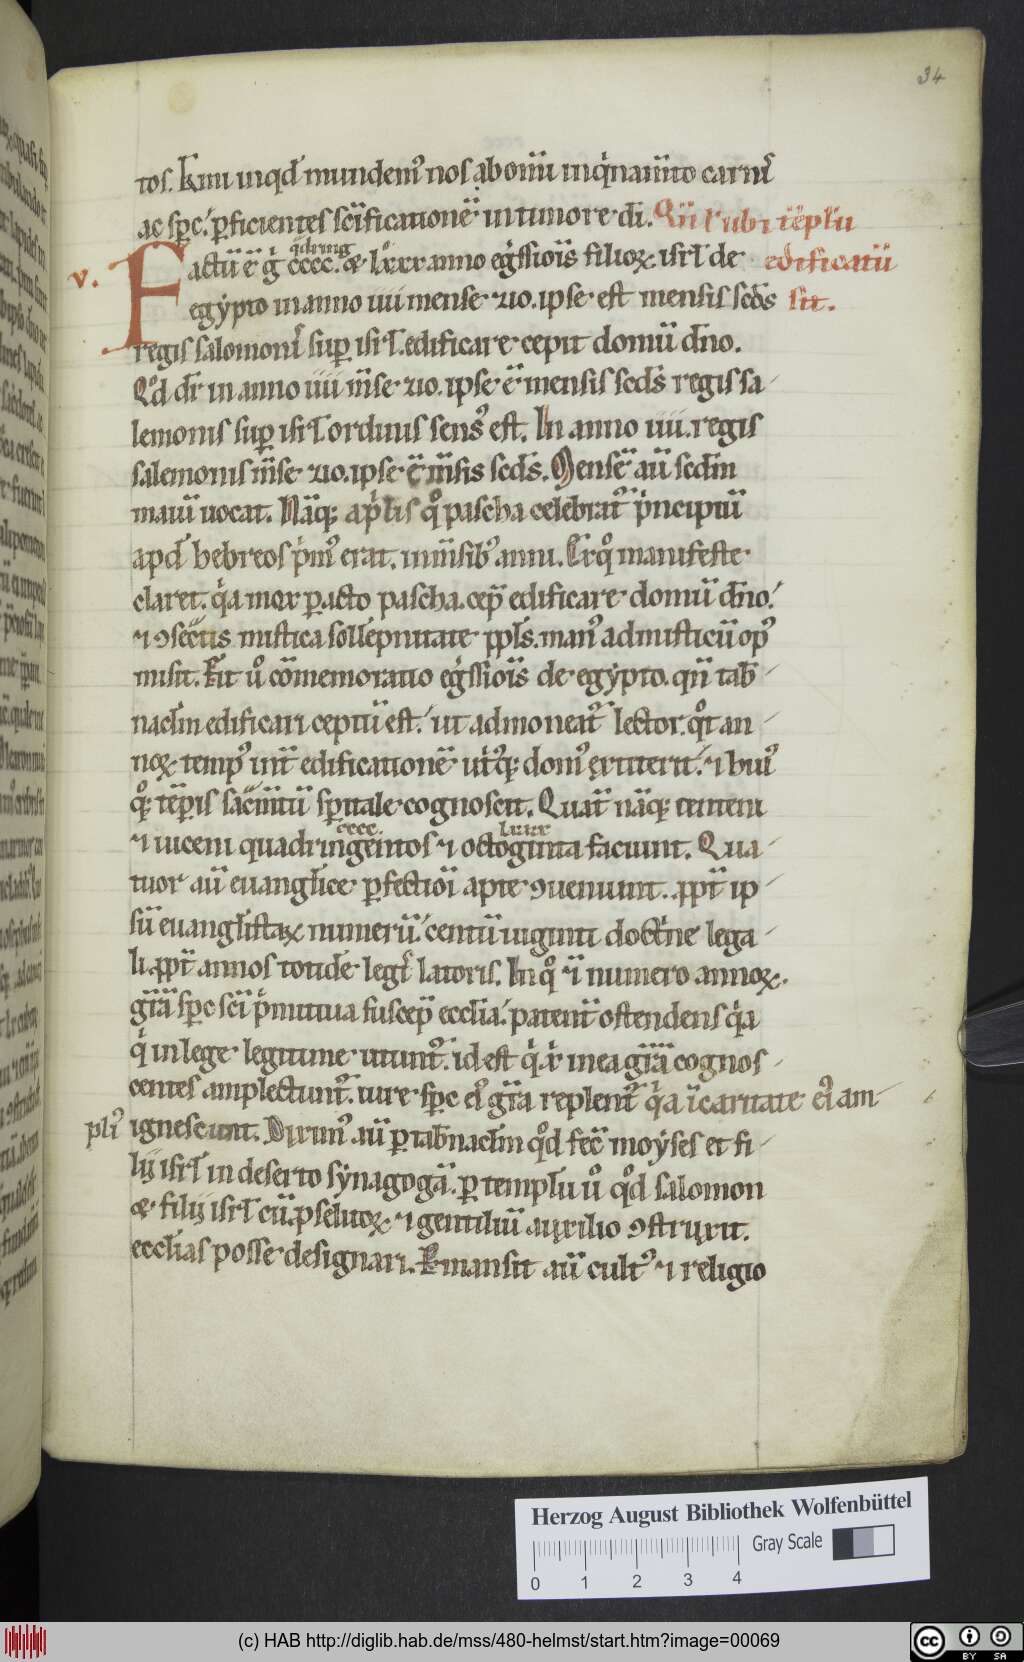 34
tos. k̄mi inqd̄ mundem᷒ nos ab om̄i inq̇nam̄to carnis᷒
ac sp̄c. p̱ficientes sc̄ificationē in timore dī. Qn̄ l ubi tēplū
v. Factū ē g̊ cccc. & lxxx anno eg̊ssiōis filioꝝ isrl̄ de edificatū
qdring
egẏpto in anno iiii mense zio. ipse est mensis scd̄s sit.
regis salomonis᷒ sup̱ isrl̄. edificare cepit domū dn̄o.
Qd̊ dr̄ in anno iiii m̄se zio. ipse ē mensis scd̄s regis sa
lemonis sup̱ isrl̄ ordinis sens᷒ est. In anno iiii. regis
salemonis m̄se zio. ipse ē m̄sis scd̄s. Mensē aū scdm̄
maiū uocat. Nāq; ap̊lis q̊ pascha celebrat᷒ p̊ncipiū
apd̄ hebreos p̊m᷒ erat. in m̄sib᷒ anni. Exq̊ manifeste
claret. q̊a mox p̱acto pascha. cep̄ edificare domū dn̄o.
⁊ ꝯsec̄tis mistica sollēpnitate ppl̄s. man᷒ ad misticū op᷒
misit. Fit ů cōmemoratio eg̊ssiōis de egẏpto. qn̄ tab̄
nacl̄m edificari ceptū est. ut admoneat᷒ lector. q̊t an
noꝝ temp᷒ int̄ edificationē utiꝰq; dom᷒ extiterit. ⁊ hui᷒
q̊; tēp̱is sac̄mtū sp̱itale cognoscit. Quat̄ nāq; centeni
⁊ uiceni quadringentos ⁊ octoginta faciunt. Qua
cccc. lxxx
tuor aū euanglīce p̱fectiōi apte ꝯueniunt. ꝓpt̄ ip
sū euanglīstaꝝ numerū. centū uiginti doctrine lega
li. ꝓpt̄ annos totidē legis᷒ latoris. In q̊ ⁊ numero annoꝝ.
grām sp̄c sc̄i p̊mitiua suscep̄ eccl̄ia. patent̄ ostendens q̊a
q̊ in lege legitime utunt᷒. id est q̊ xp̄i in ea grām cognos
centes amplectunt᷒. iure sp̄c ei᷒ grā replent᷒ q̊a ī caritate ei᷒ am
pli᷒ ignescunt. Dixim᷒ aū p̱ tab̄nacl̄m qd̊ fec̄ moẏses et fi
lij isrl̄ in deserto sẏnagogā. p̱ templū ů qd̊ salomon
& filij isrl̄ cū p̱selitoꝝ ⁊ gentiliū auxilio ꝯstruxit.
eccl̄ias posse designari. Remansit aū cult᷒ ⁊ religio
Herzog August Bibliothek Wolfenbüttel
0 1 2 3 4 Gray Scale
(c) HAB http://diglib.hab.de/mss/480-helmst/start.htm?image=00069
cc BY SA